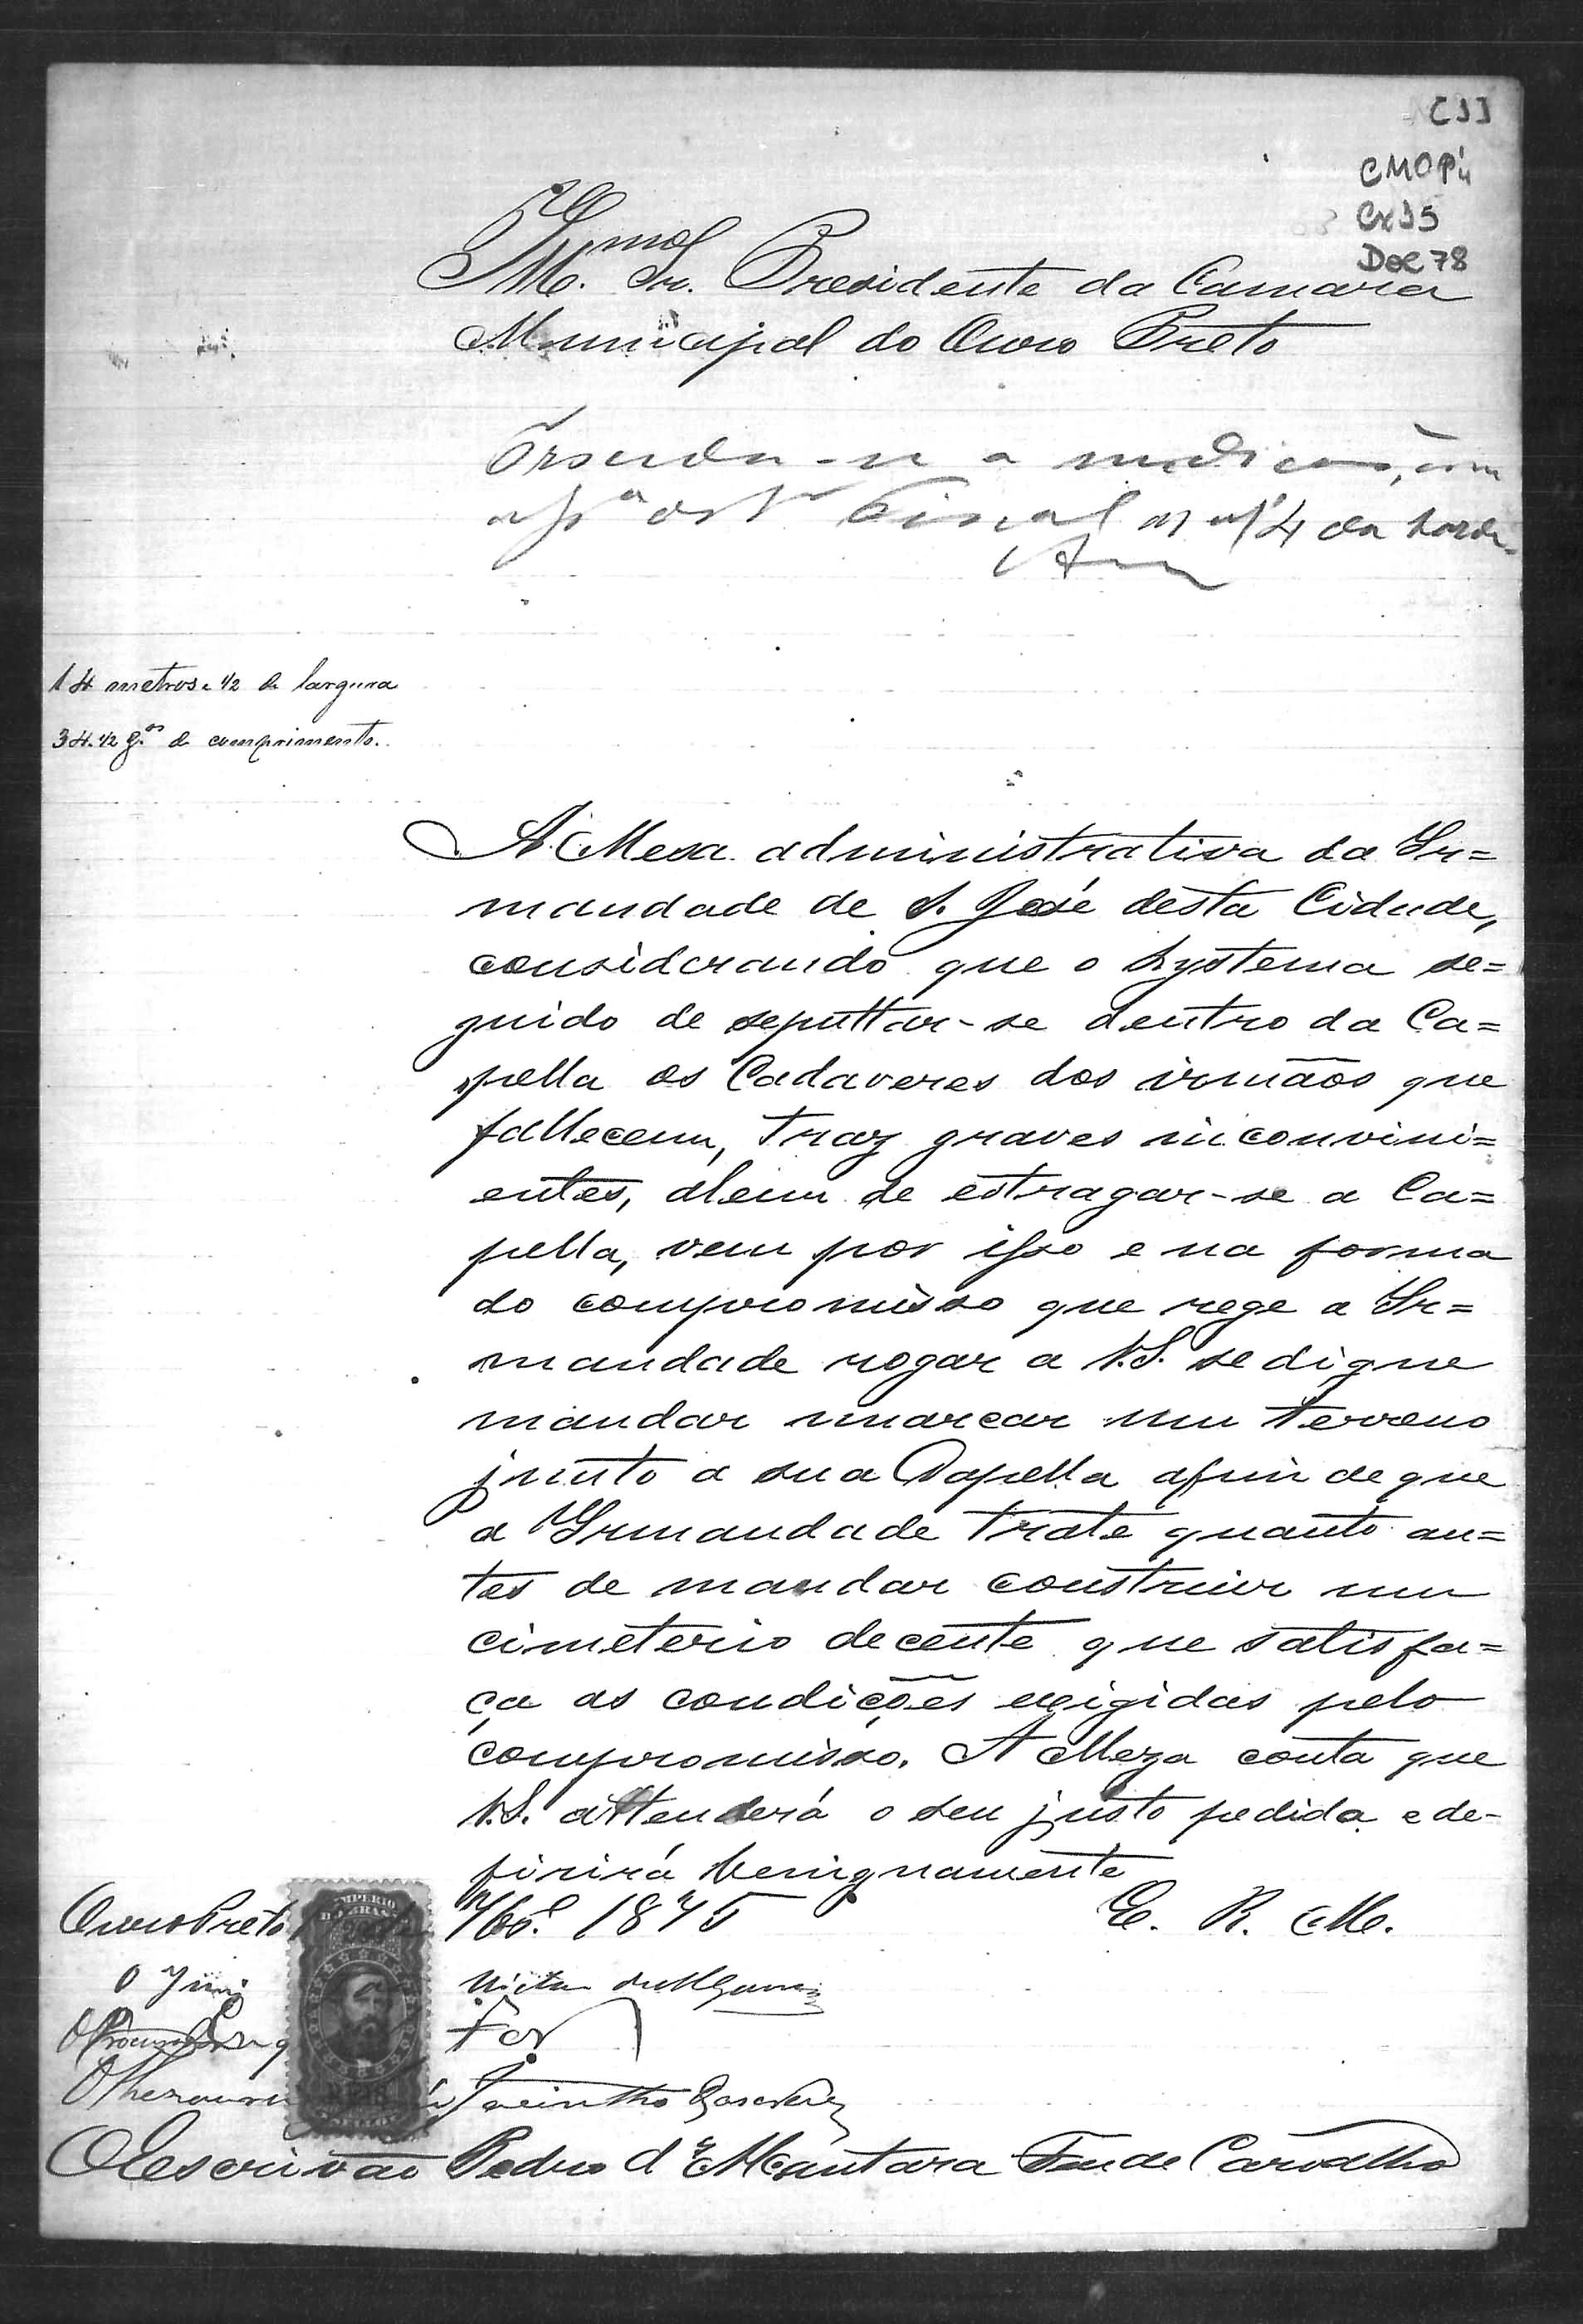 [1]
CMOP'4
Cx15
Doc 78
Illmo. Sr. Presidente da Camara
Municipal do Ouro Preto
Proceda-se a medicão, com
Fiscal 4 da tarde
14 metros e 1/2 de largura
34. 1/2 d.os de comprimento.
A Mesa administrativa da Ir=
mandade de S. José desta Cidade,
considerando que o systema se=
guido de sepultar-se dentro da Ca=
pella os Cadaveres dos irmãos que
fallecem, traz graves inconvini=
entes, alem de estragar-se a Ca=
pella, vem por isso e na forma
do compromisso que rege a Ir=
mandade rogar a V.S. se digne
mandar marcar um terreno
junto a sua Capella afim de que
a Irmandade trate quanto an=
tes de mandar construir um
cimeterio decente que satisfa=
ça as condições exigidas pelo
compromisso. A Meza conta que
V.S. attenderá o seu justo pedido e de-
firirá benignamente
Ouro Preto 1875
E. R. Me.
IMPERIO
DO BRASIL
O Juiz
O Procurador
O Thesoureiro Jacintho
O Escrivão Pedro d'Alcantara de Carvalho